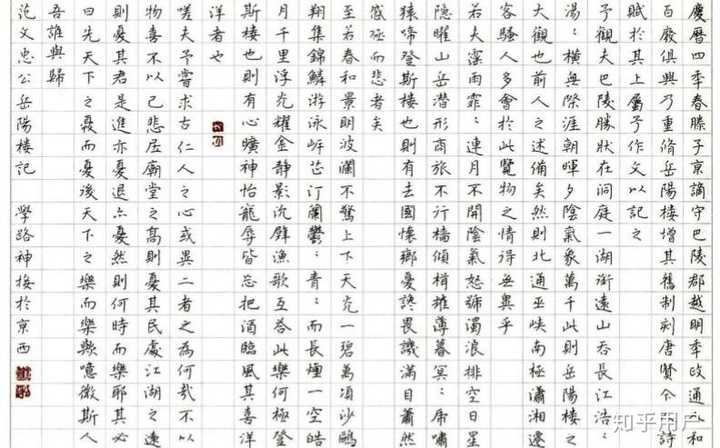 慶曆四年春滕子京謫守巴陵郡越明年政通人和
百廢俱興乃重脩岳陽樓增其舊制刻唐賢今人詩
賦於其上屬予作文以記之
予觀夫巴陵勝狀在洞庭一湖銜遠山吞長江浩〻
湯〻橫無際涯朝暉夕陰氣象萬千此則岳陽樓之
大觀也前人之述備矣然則北通巫峽南極瀟湘遷
客騷人多會於此覽物之情得無異乎
若夫霪雨霏〻連月不開陰氣怒號濁浪排空日星
隱曜山岳潛形商旅不行檣傾楫摧薄暮冥〻虎嘯
猿啼登斯樓也則有去國懷鄉憂讒畏譏滿目蕭然
感極而悲者矣
至若春和景明波瀾不驚上下天光一碧萬頃沙鷗
翔集錦鱗游泳岸芷汀蘭鬱〻青〻而長煙一空皓
月千里浮光耀金靜影沉璧漁歌互答此樂何極登
斯樓也則有心曠神怡寵辱皆忘把酒臨風其喜洋
洋者也
嗟夫予嘗求古仁人之心或異二者之為何哉不以
物喜不以己悲居廟堂之高則憂其民處江湖之遠
則憂其君是進亦憂退亦憂然則何時而樂耶其必
曰先天下之憂而憂後天下之樂而樂歟噫微斯人
吾誰與歸
范文忠公岳陽樓記 學路神接於京西
知乎用户